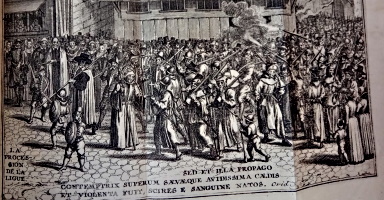 LA
PROCES-
SION
DE LA
LIGUE
SED ET ILLA PROPAGO
CONTEMPTRIX SUPERUM SÆVÆQUE AVIDISSIMA CÆDIS
ET VIOLENTA FUIT, SCIRES E SANGUINE NATOS. Ovid.